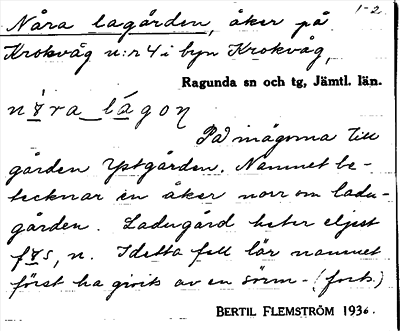 Nåra lagården, åker på 1-2
Krokvåg n:r 4 i byn Krokvåg,
Ragunda sn och tg, Jämtl. län.
På inägorna till
gården Ystgården. Namnet be-
tecknar en åker norr om ladu-
gården. Ladugård heter eljest
fɤs, n. I detta fall lär namnet
först ha givits av en sörm- (forts.)
BERTIL FLEMSTRÖM 1936.